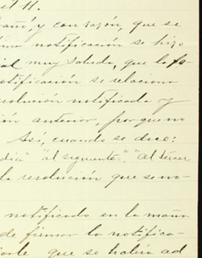 añó, y con razón, que se
notificación se hizo
al muy saluda, que la fo
notificación se relaciona
solución notificada y
ión anterior, porque no
Así, cuando se dice:
dice "al siguiente." "Al tercer
la resolución que se no-
notificado en la maña
de firmar la notifica-
que se había ad